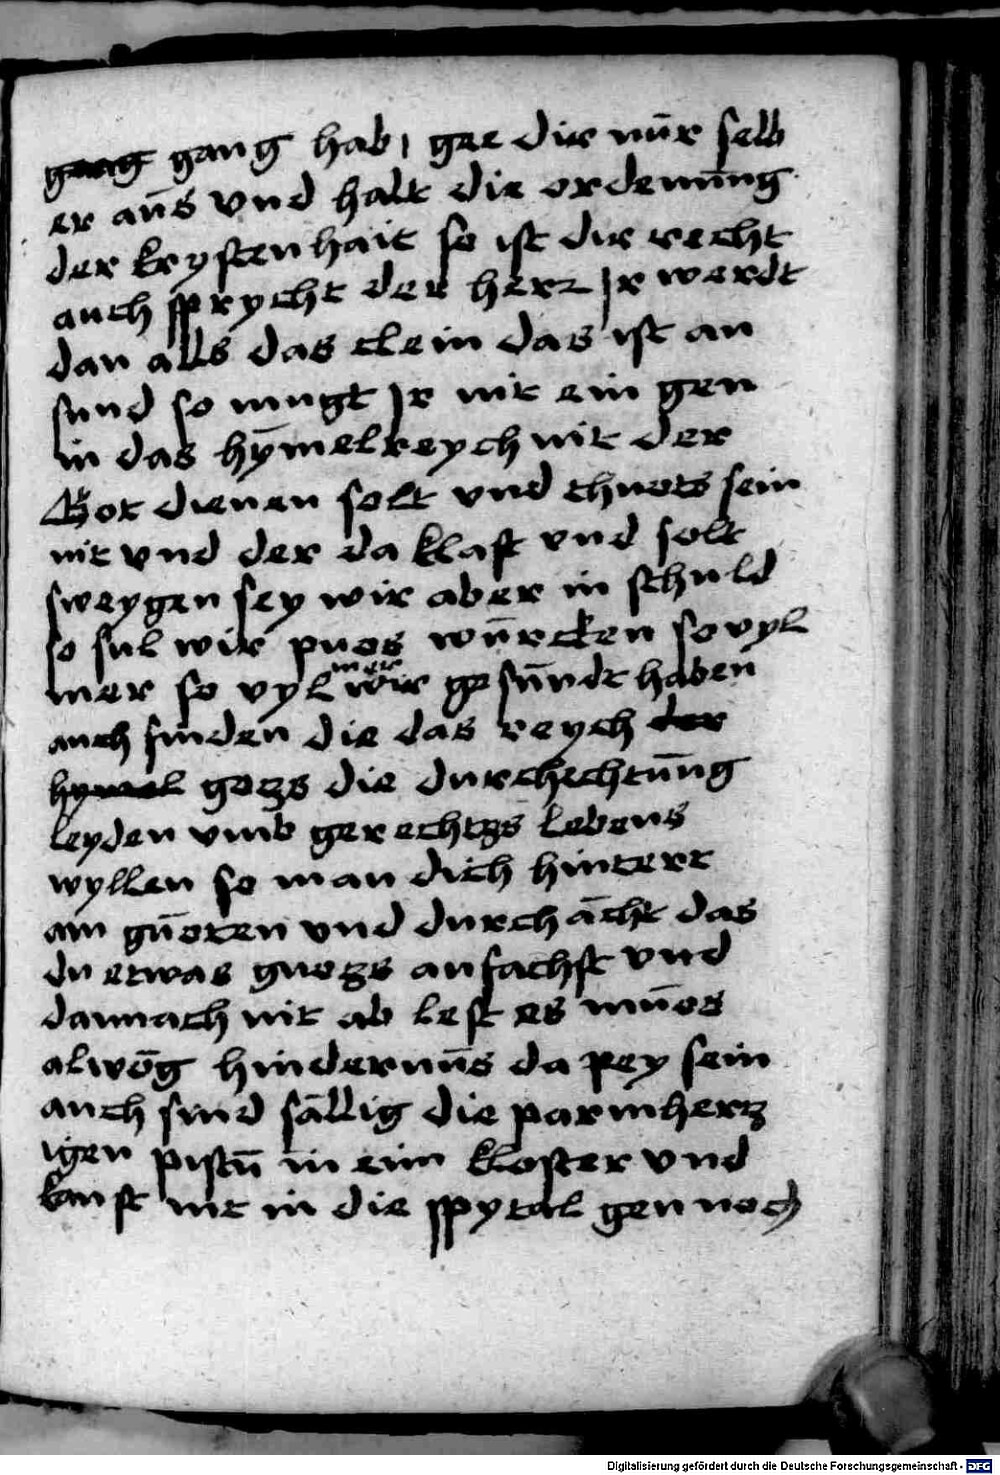 gang gang hab, gee dir nūr selb
er aūs vnd halt die ordemūng
der krystenhait so ist dir recht
auch sprycht der herz Ir werdt
dan alls das clein das ist an
sund so mugt Ir nit ein gen
in das hȳmelreych nit der
Got dienen solt vnd thuots sein
nit vnd der da klaft vnd solt
sweygen sey wir aber in schuld
so sul wir puos wūrcken so vyl
mer
mer so vyl wir gesūndt haben
auch finden die das reych der
hymel gotzs die durchechtūng
leyden vmb gerechtzs lebens
wyllen so man dich hinterr
am gūoten vnd durchācht das
du etwas guotzs anfachst vnd
dannach nit ab lest es mūos
alwōg hindernūs da pey sein
auch sind sāllig die parmhertz
igen pistū in eim kloster vnd
kanst nit in die spytal gen noch
Digitalisierung gefördert durch die Deutsche Forschungsgemeinschaft - DFG